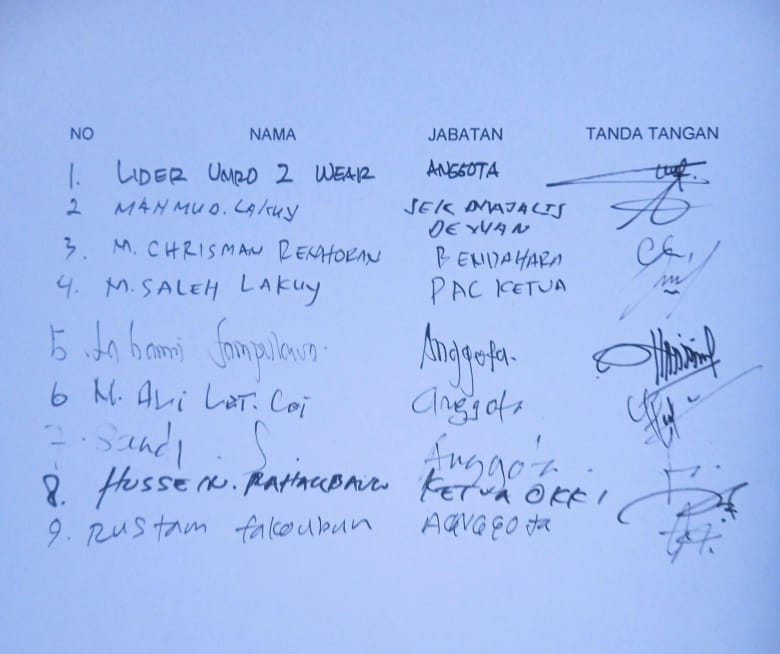 NO NAMA JABATAN TANDA TANGAN
1. LIDER UMRO 2 WEAR ANGGOTA
2 MAHMUD. LAKUY SEK MAJALIS
DEWAN
3. M. CHRISMAN RENHORAN BENDAHARA
4. M. SALEH LAKUY PAC KETUA
5. Anggota.
6 M. ALI LET. Coi anggota
7. Sandi S. Anggota.
8. HUSSEIN. RAHAUBAUN KETUA OKK 1
9. RUStam fakoubun ANGGOta